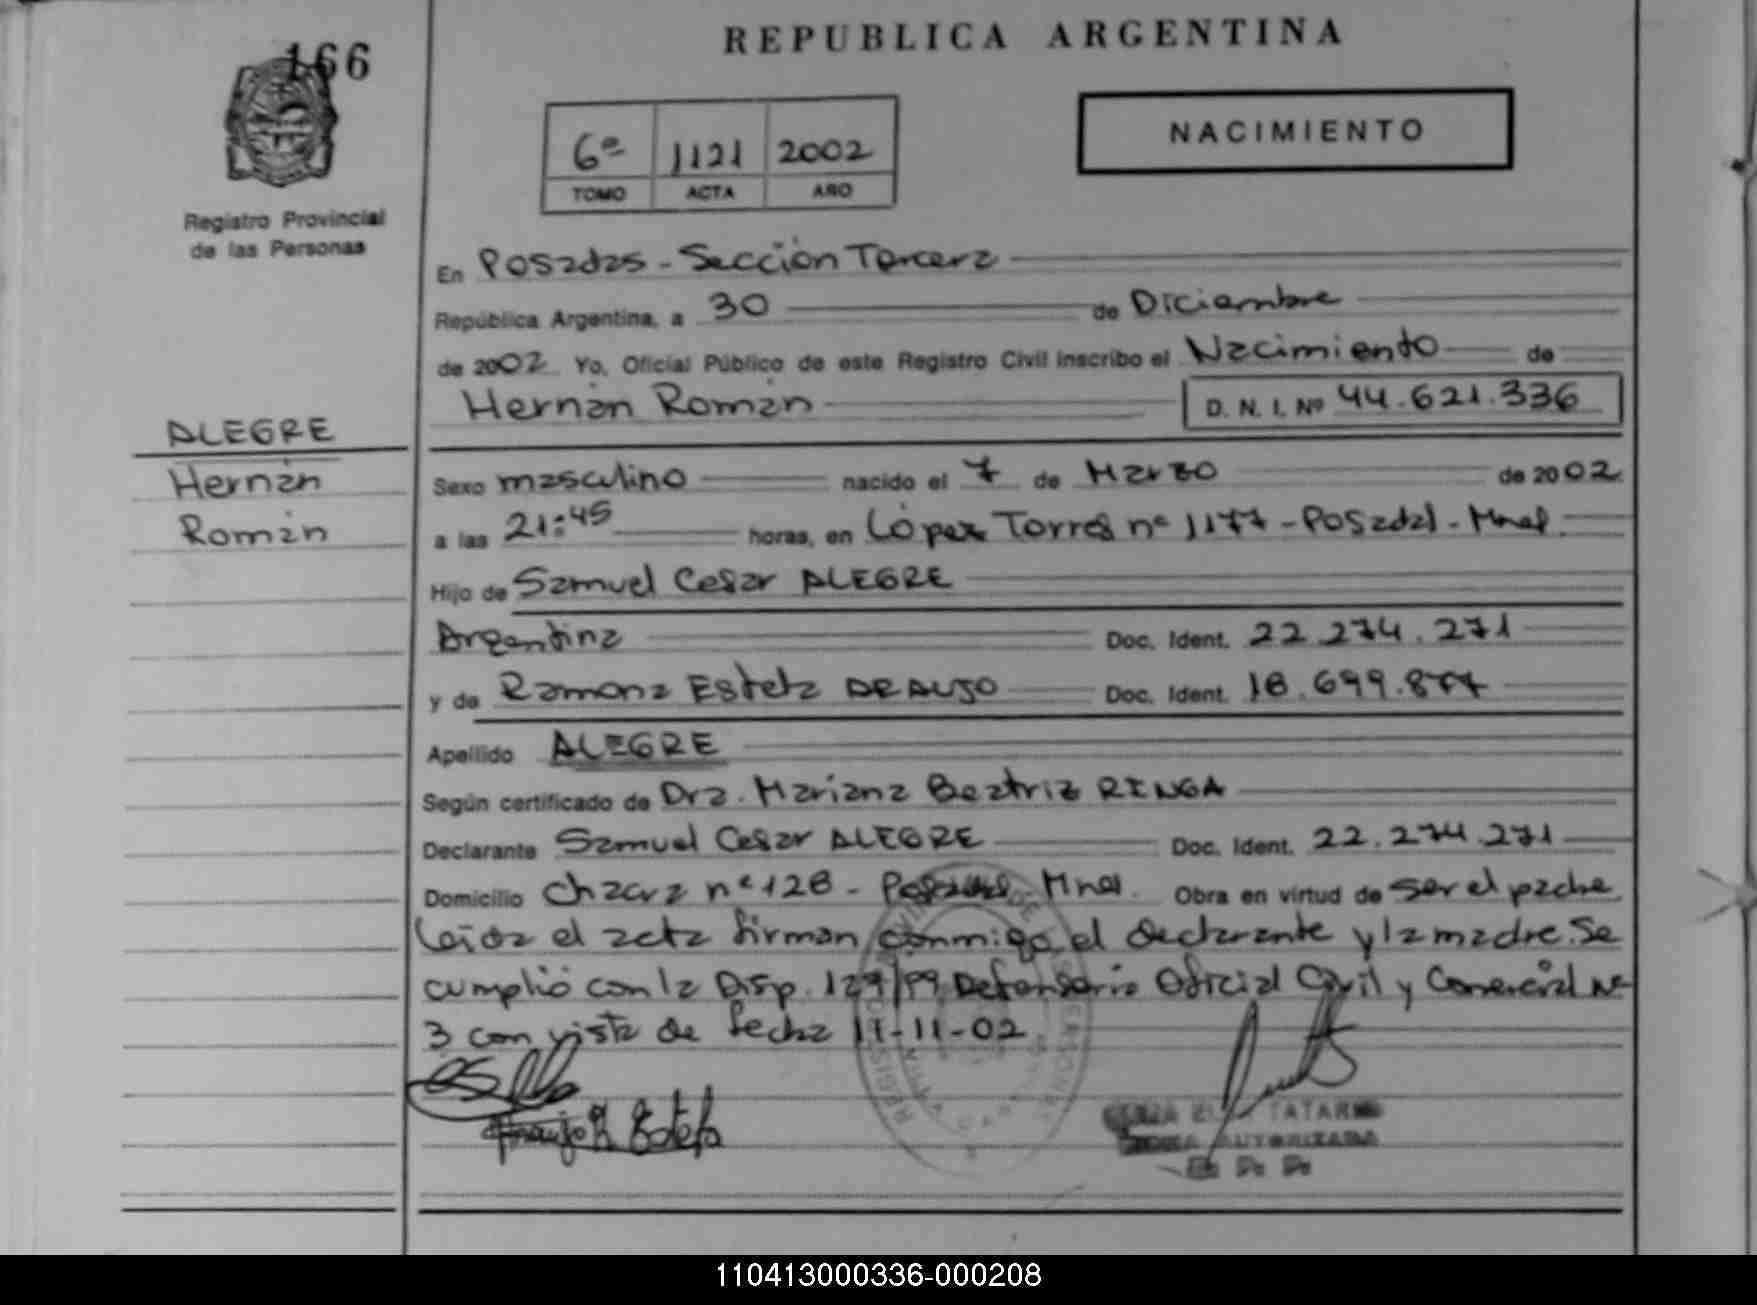 166
REPUBLICA ARGENTINA
6º 1121 2002
TOMO ACTA AÑO
NACIMIENTO
Registro Provincial
de las Personas
En Posadas - Sección Tercera
República Argentina, a 30 de Diciembre
de 2002 Yo, Oficial Público de este Registro Civil inscribo el Nacimiento de
Hernán Román D. N. I. Nº 44.621.336
ALEGRE
Hernán
Román
Sexo masculino nacido el 7 de Marzo de 2002
a las 21:45 horas, en López Torres nº 1177 - Posadas - Mnes.
Hijo de Samuel Cesar ALEGRE
Argentina Doc. Ident. 22.274.271
y de Ramona Estela ARAUJO Doc. Ident. 18.699.877
Apellido ALEGRE
Según certificado de Dra. Mariana Beatriz RINGA
Declarante Samuel Cesar ALEGRE Doc. Ident. 22.274.271
Domicilio Chacra nº 128 - Posadas Mnes. Obra en virtud de ser el padre
Leída el acta firman conmigo el declarante y la madre. Se
cumplió con la Disp. 127/99 Defensoria Oficial Civil y Comercial Nº
3 con vista de fecha 11-11-02
Araujo R Estela
AUTORIZADA
110413000336-000208